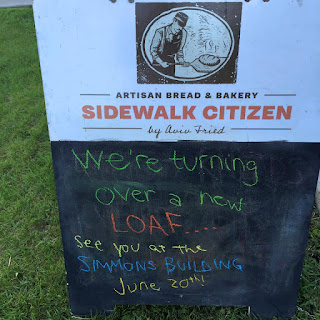 ARTISAN BREAD & BAKERY
SIDEWALK CITIZEN
by Aviv Fried
We're turning
over a new
LOAF....
See you at the
SIMMONS BUILDING
June 20th!